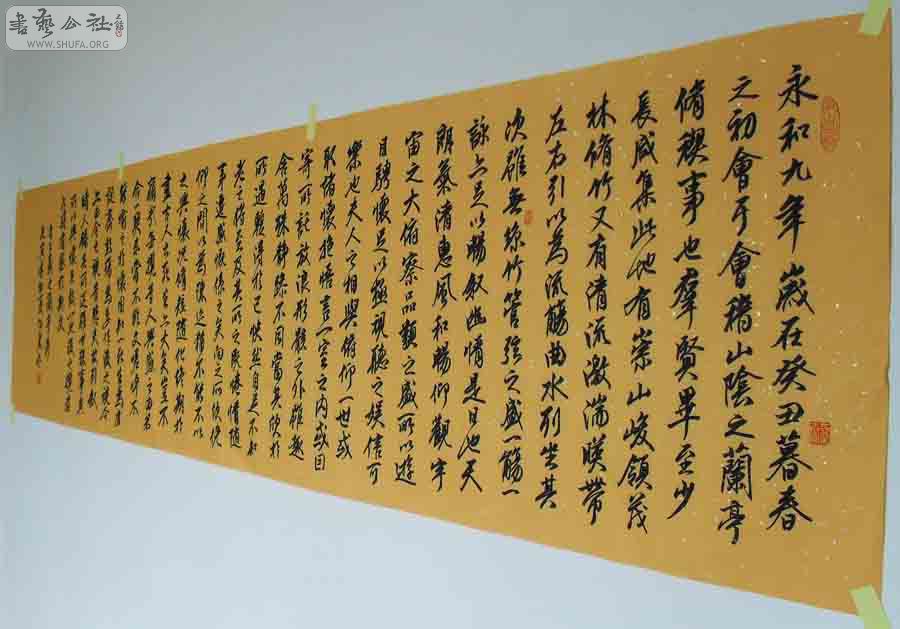 書藝公社
WWW.SHUFA.ORG
永和九年歲在癸丑暮春
之初會于會稽山陰之蘭亭
脩稧事也羣賢畢至少
長咸集此地有崇山峻領茂
林脩竹又有清流激湍暎帶
左右引以為流觴曲水列坐其
次雖無絲竹管弦之盛一觴一
詠亦足以暢敘幽情是日也天
朗氣清惠風和暢仰觀宇
宙之大俯察品類之盛所以遊
目騁懷足以極視聽之娛信可
樂也夫人之相與俯仰一世或
取諸懷抱悟言一室之內或因
寄所託放浪形骸之外雖趣
舍萬殊靜躁不同當其欣於
所遇暫得於己快然自足不知
老之將至及其所之既惓情隨
事遷感慨係之矣向之所欣俛
仰之間以為陳迹猶不能不以
之興懷況脩短隨化終期於
盡古人云死生亦大矣豈不
痛哉每攬昔人興感之由若
合一契未嘗不臨文嗟悼不
能喻之於懷固知一死生為虛
誕齊彭殤為妄作後之視今